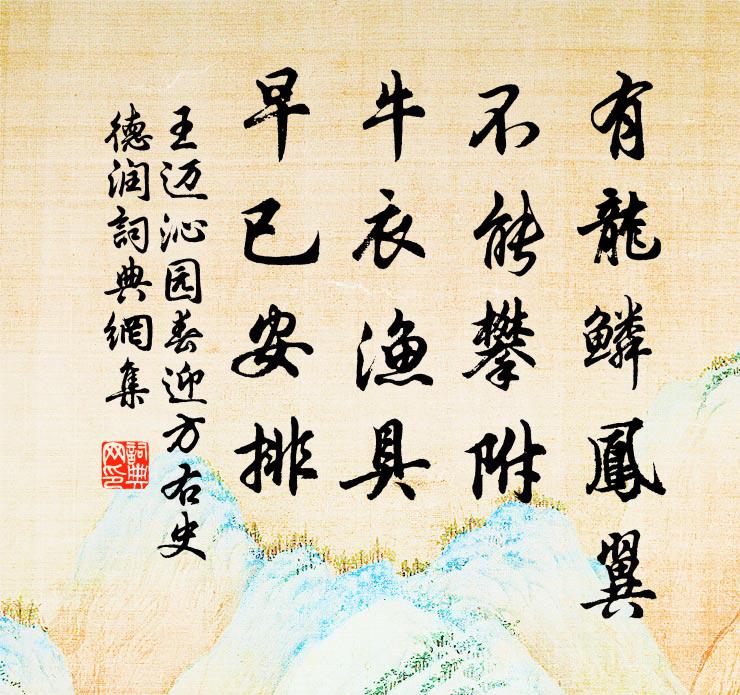 有龍鱗鳳翼
不能攀附
牛衣漁具
早已安排
王迈沁园春迎方右史
德润詞典網集
詞典網印